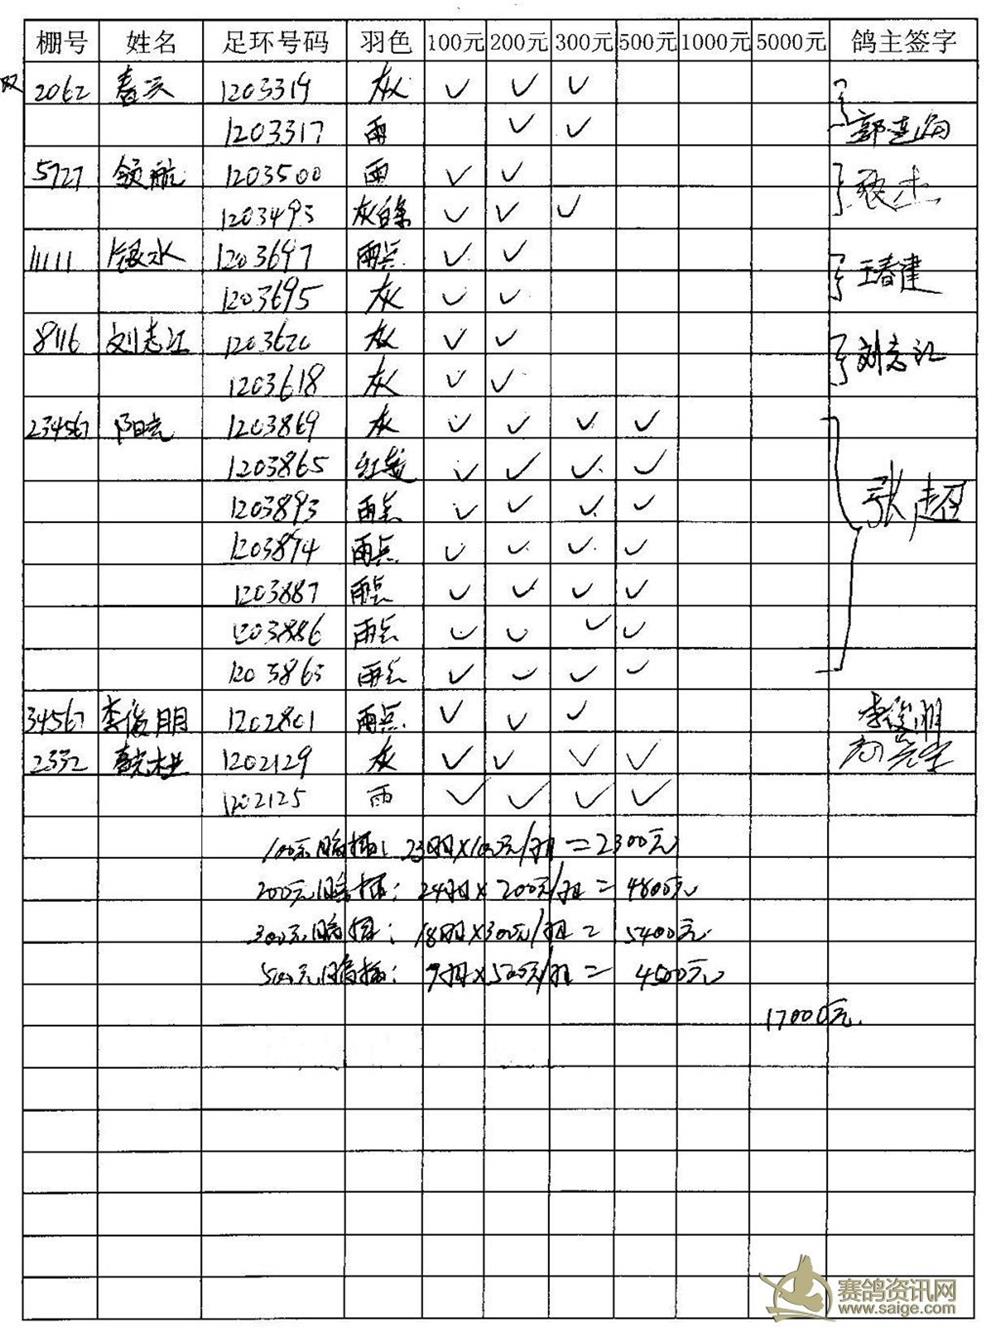 棚号 姓名 足环号码 羽色 100元 200元 300元 500元 1000元 5000元 鸽主签字
双 2062 春天 1203319 灰 ✓ ✓ ✓
1203317 雨 ✓ ✓ 郭连海
5727 领航 1203500 雨 ✓ ✓
1203493 灰白条 ✓ ✓ ✓
11111 银水 1203697 雨点 ✓ ✓
1203695 灰 ✓ ✓ 王春建
8116 刘志江 1203620 灰 ✓ ✓ 刘志江
1203618 灰 ✓ ✓
234567 阳光 1203869 灰 ✓ ✓ ✓ ✓
1203865 ✓ ✓ ✓ ✓
1203893 雨点 ✓ ✓ ✓ ✓ 张超
1203894 雨点 ✓ ✓ ✓ ✓
1203887 雨点 ✓ ✓ ✓ ✓
1203886 雨点 ✓ ✓ ✓ ✓
1203863 雨点 ✓ ✓ ✓ ✓
34567 李俊明 1202801 雨点 ✓ ✓ ✓ 李俊明
2332 1202129 灰 ✓ ✓ ✓ ✓
1202125 雨 ✓ ✓ ✓ ✓
100元鸽插: 23羽×100元/羽=2300元
200元鸽插: 24羽×200元/羽=4800元
300元鸽插: 18羽×300元/羽=5400元
500元鸽插: 9羽×500元/羽=4500元
17000元
赛鸽资讯网
www.saige.com